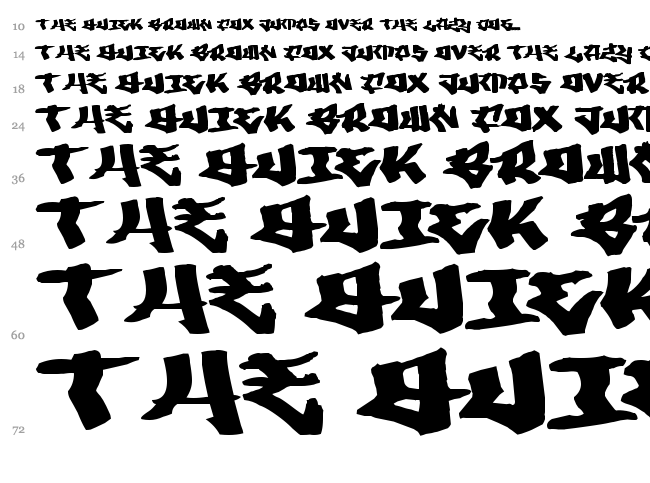 10 THE QUICK BROWN FOX JUMPS OVER THE LAZY DOG
14 THE QUICK BROWN FOX JUMPS OVER THE LAZY
18 THE QUICK BROWN FOX JUMPS OVER
24 THE QUICK BROWN FOX
36 THE QUICK BROWN
48 THE QUICK
60 THE QUICK
72 THE QUI